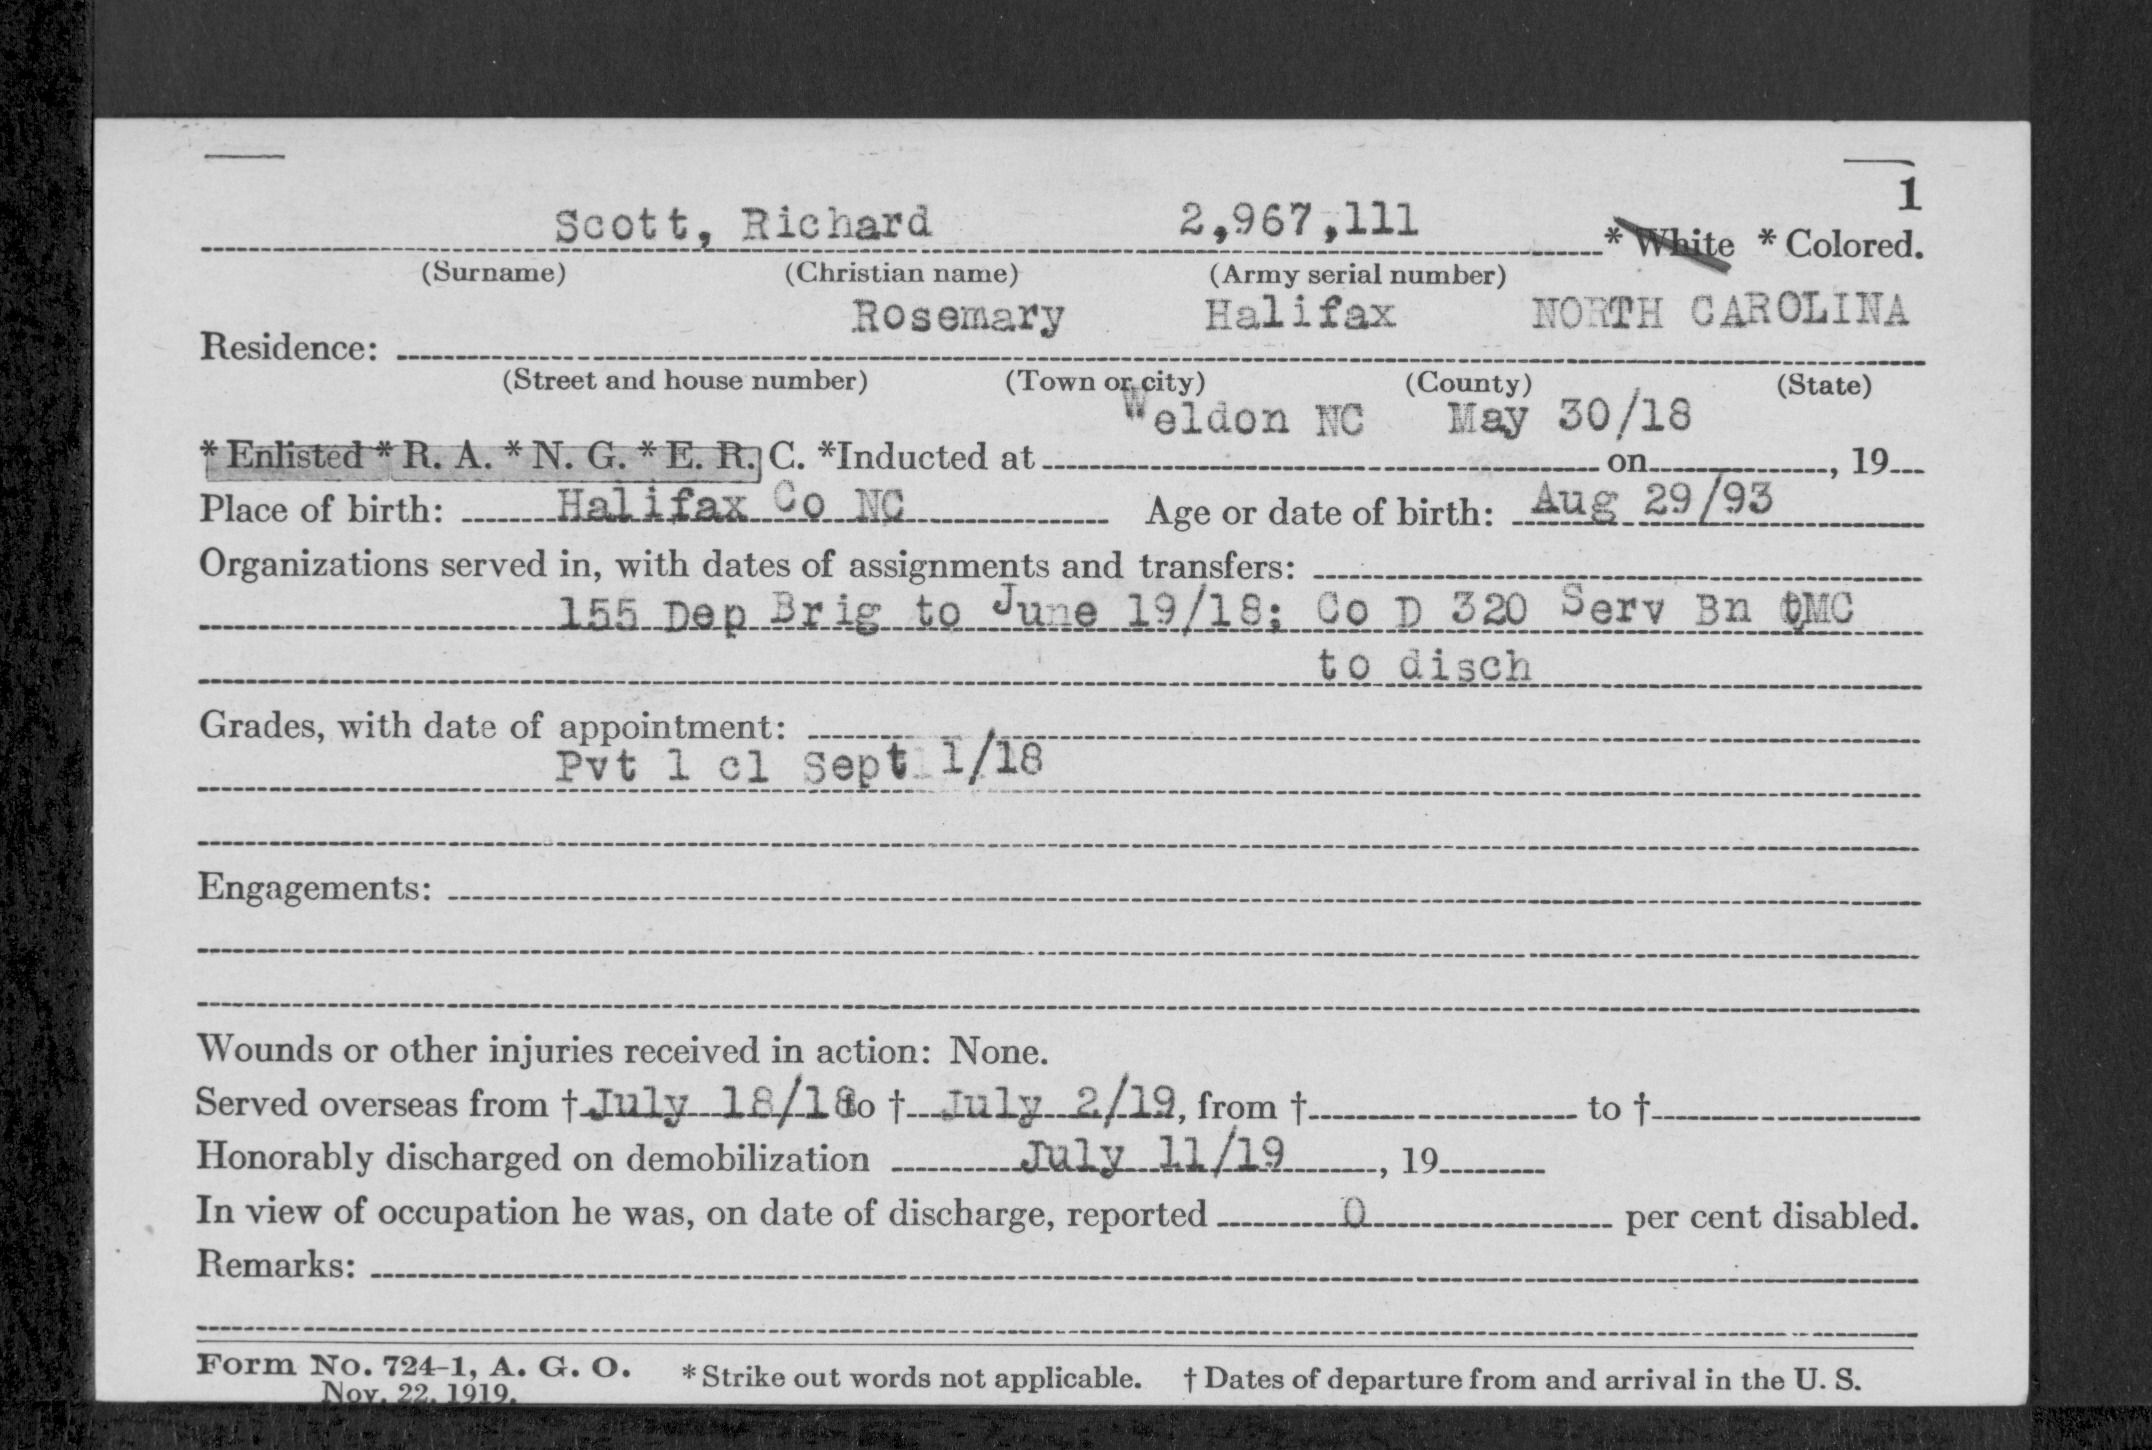 1
Scott, Richard 2,967,111 * White * Colored.
(Surname) (Christian name) (Army serial number)
Rosemary Halifax NORTH CAROLINA
Residence:
(Street and house number) (Town or city) (County) (State)
Weldon NC May 30/18
* Enlisted * R. A. * N. G. * E. R. C. *Inducted at on , 19
Place of birth: Halifax Co NC Age or date of birth: Aug 29/93
Organizations served in, with dates of assignments and transfers:
155 Dep Brig to June 19/18; Co D 320 Serv Bn QMC
to disch
Grades, with date of appointment:
Pvt 1 cl Sept 1/18
Engagements:
Wounds or other injuries received in action: None.
Served overseas from † July 18/18 to † July 2/19, from † to †
Honorably discharged on demobilization July 11/19 , 19
In view of occupation he was, on date of discharge, reported 0 per cent disabled.
Remarks:
Form No. 724-1, A. G. O. * Strike out words not applicable. † Dates of departure from and arrival in the U. S.
Nov. 22, 1919.